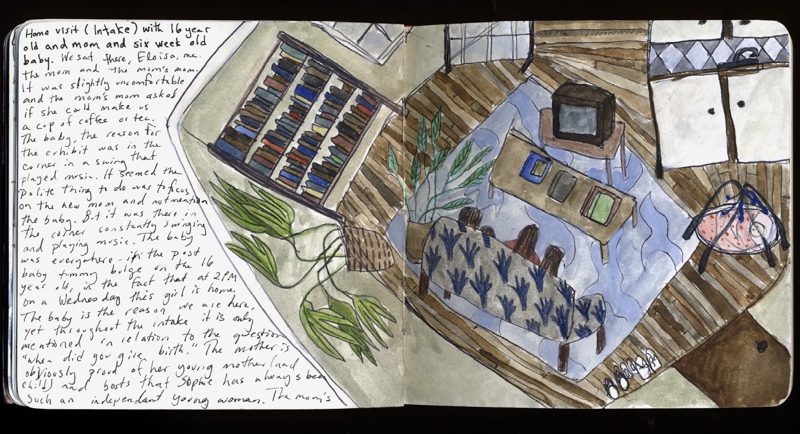 Home visit (Intake) with 16 year
old and mom and six week old
baby. We sat there, Eloisa, me.
the mom and the mom's mom.
It was slightly uncomfortable
and the mom's mom asked
if she could make us
a cup of coffee or tea.
The baby, the reason for
the exhibit was in the
corner in a swing that
played music. It seemed the
polite thing to do was to focus
on the new mom and not mention
the baby. But it was there in
the corner constantly swinging
and playing music. The baby
was everywhere - in the post
baby tummy bulge on the 16
year old, in the fact that at 2PM
on a Wednesday this girl is home.
The baby is the reason we are here,
yet throughout the intake it is only
mentioned in relation to the question
"when did you give birth." The mother is
obviously proud of her young mother (and
child) and bosts that Sophie has always been
such an independent young woman. The mom's